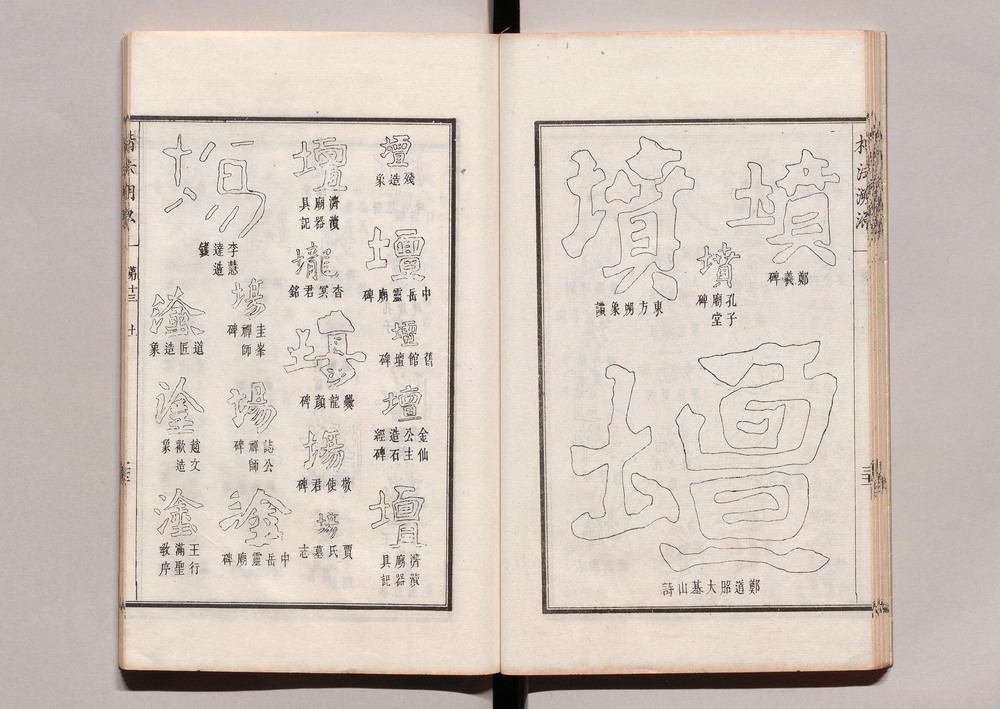 墳
鄭羲碑
墳
孔子廟堂碑
墳
東方朔象讚
壇
鄭道昭大基山詩
壇
殘造象
壇
中岳靈廟碑
壇
舊館壇碑
壇
金仙公主造石經碑
壇
濟瀆廟器具記
壇
濟瀆廟器具記
壠
杳冥君銘
爨龍顔碑
塲
敬使君碑
塲
賈氏墓志
場
李慧達造
塲
圭峯禪師碑
場
誌公禪師碑
塗
中岳靈廟碑
塗
道匠造象
塗
趙文歡造象
塗
王行滿聖教序
第十三